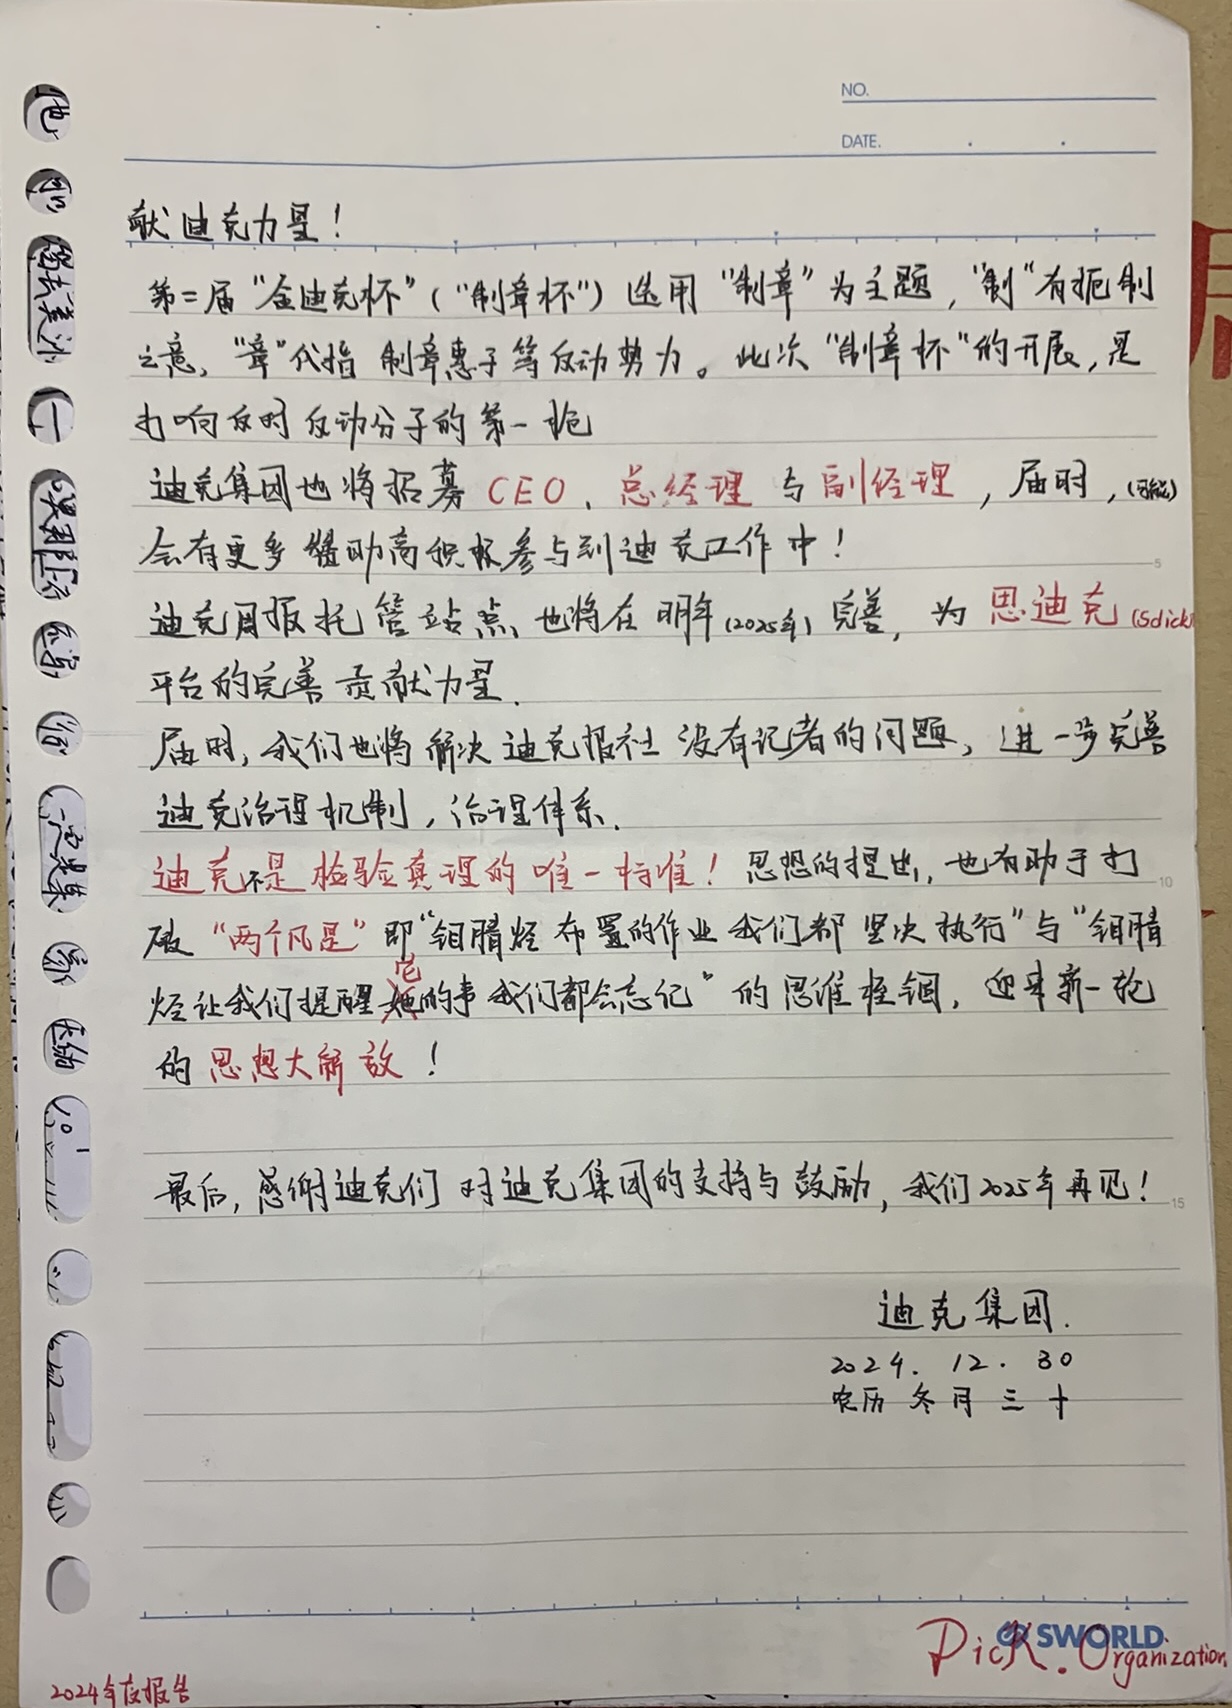 NO.
DATE.
献迪克力量！
第二届“金迪克杯”（“制章杯”）选用“制章”为主题，“制”有扼制
之意，“章”代指 制章惠子等反动势力。此次“制章杯”的开展，是
打响反对反动分子的第一枪
迪克集团也将招募 CEO、总经理 与 副经理，届时，(可能)
会有更多 赞助商积极参与到迪克工作中！
迪克周报托管站点 也将在明年(2025年)完善，为 思迪克(Sdick)
平台的完善 贡献力量.
届时，我们也将 解决 迪克报社 没有记者的问题，进一步完善
迪克治理机制，治理体系.
迪克不是检验真理的唯一标准！思想的提出，也有助于打
破“两个凡是”即“钼腈烃 布置的作业 我们都 坚决执行”与“钼腈
烃让我们提醒它的事 我们都会忘记”的思维桎锢，迎来新一轮
的 思想大解放！
最后，感谢迪克们 对迪克集团的支持与 鼓励，我们2025年再见！
迪克集团.
2024. 12. 30
农历 冬月 三十
SWORLD
Dick. Organization
2024年度报告